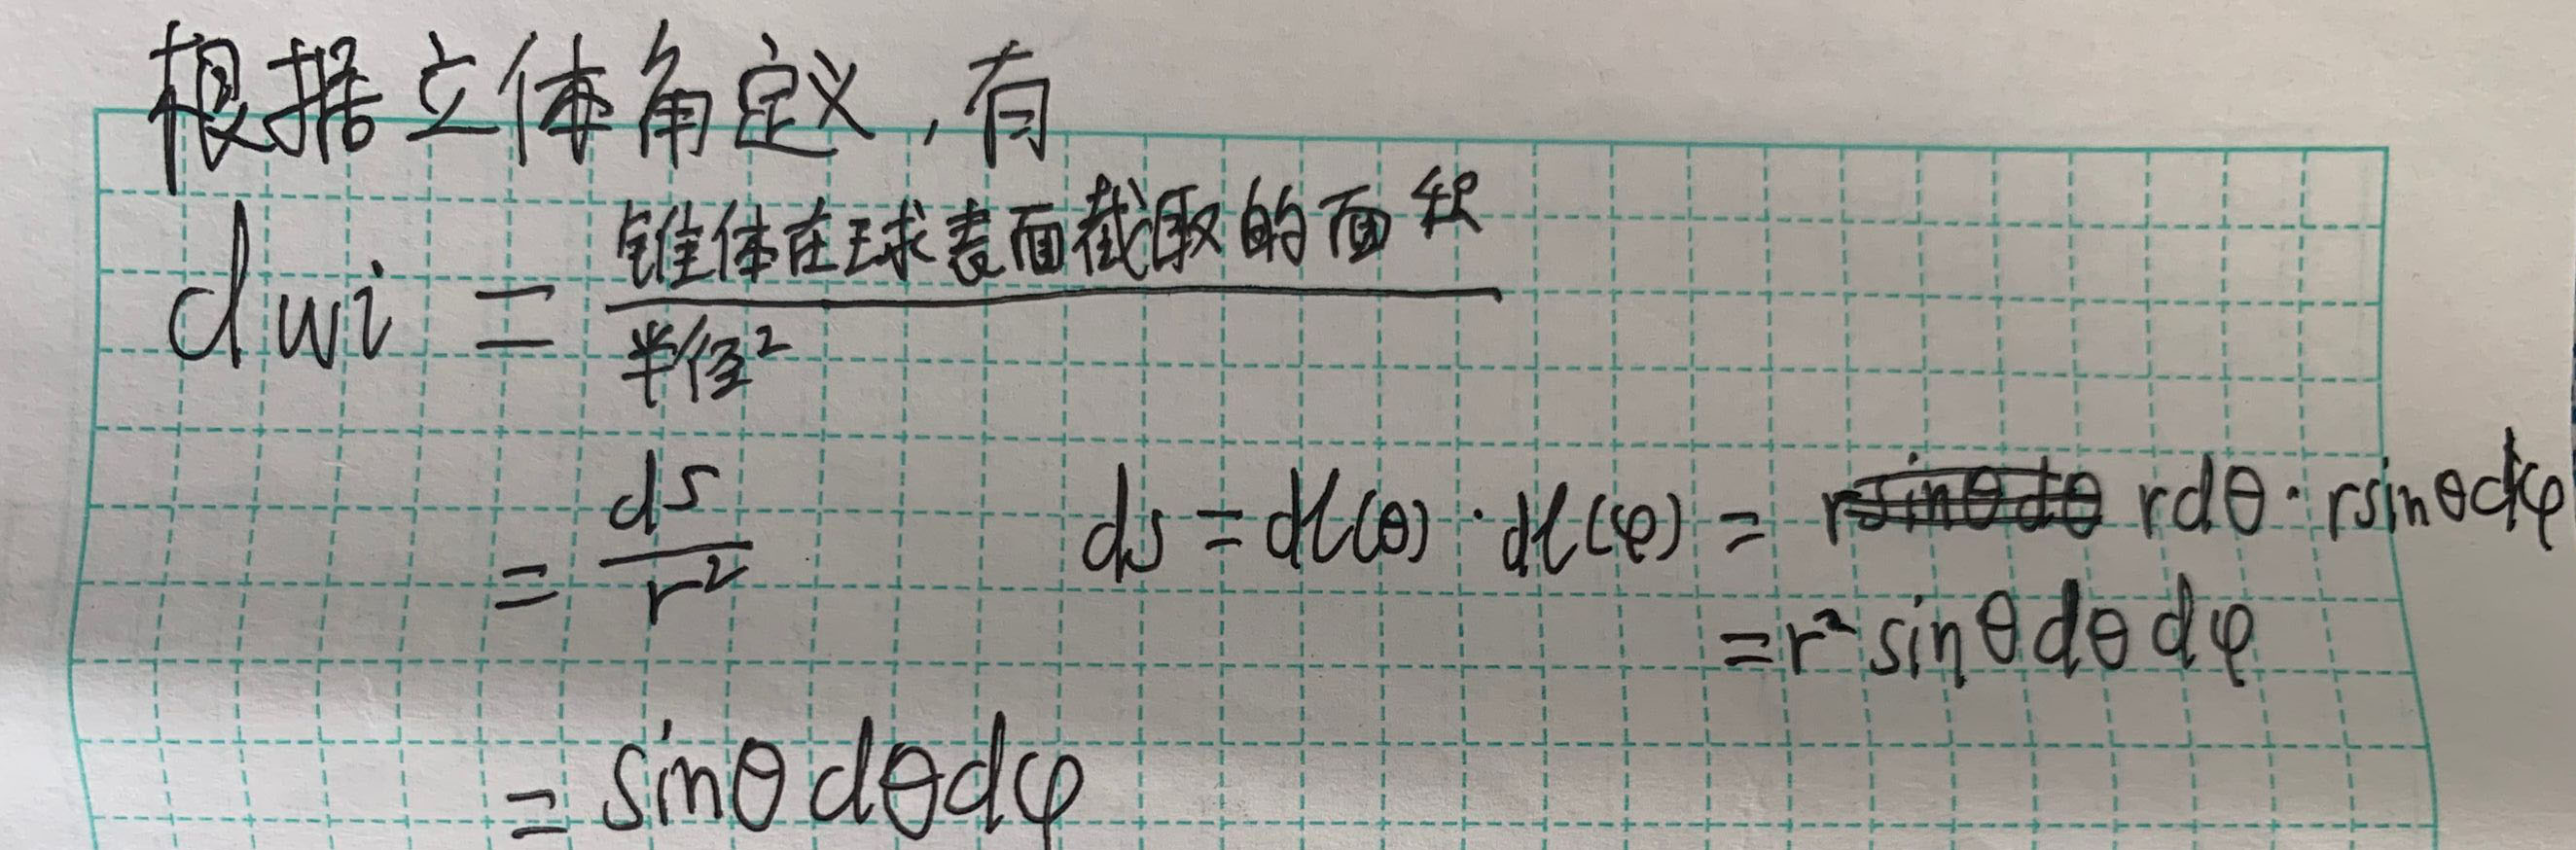 根据立体角定义,有
dwi = 锥体在球表面截取的面积 / 半径²
= ds / r²
ds = dl(θ)·dl(φ) = rdθ·rsinθdφ
= r² sinθ dθ dφ
= sinθ dθ dφ